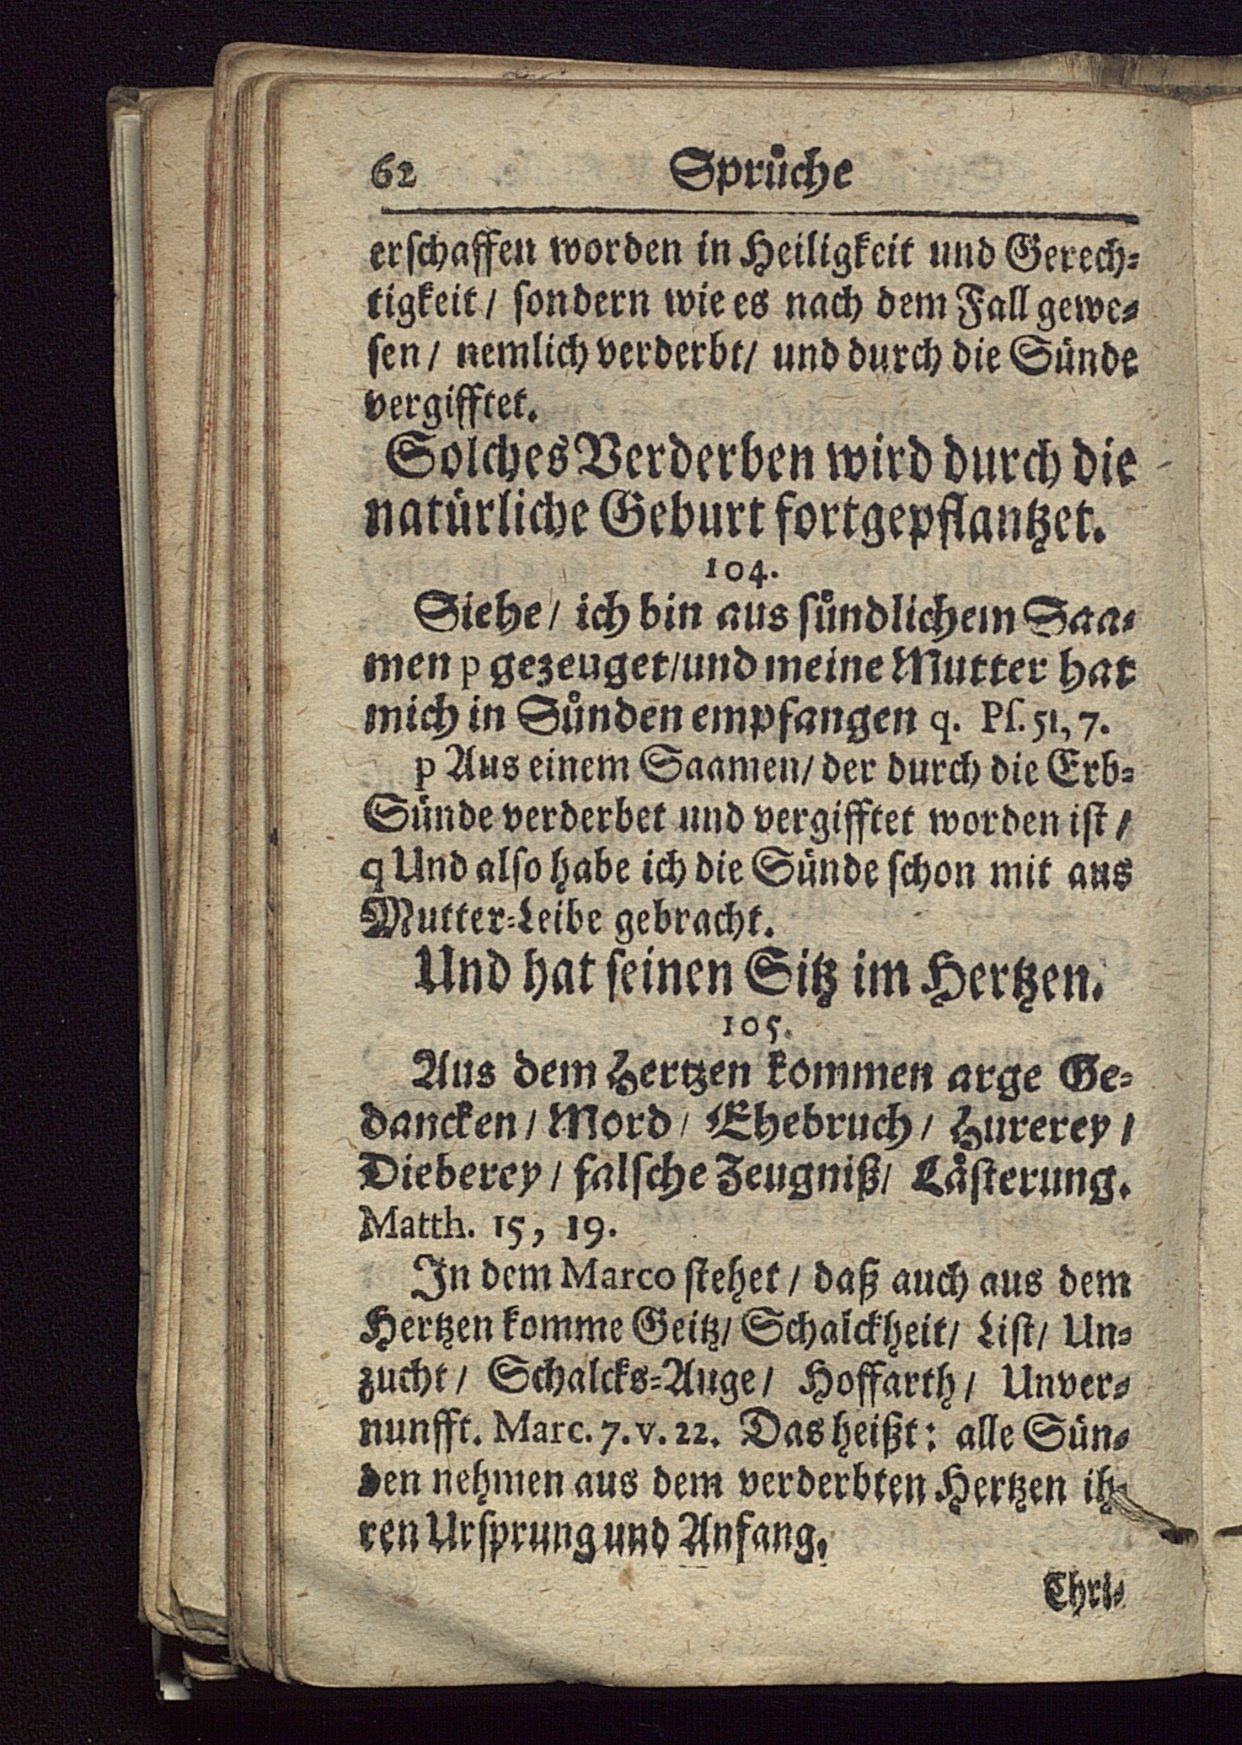 62 Sprüche
erschaffen worden in Heiligkeit und Gerech-
tigkeit / sondern wie es nach dem Fall gewe-
sen / nemlich verderbt / und durch die Sünde
vergifftet.
Solches Verderben wird durch die
natürliche Geburt fortgepflantzet.
104.
Siehe / ich bin aus sündlichem Saa-
men p gezeuget / und meine Mutter hat
mich in Sünden empfangen q. Ps. 51, 7.
p Aus einem Saamen / der durch die Erb-
Sünde verderbet und vergifftet worden ist /
q Und also habe ich die Sünde schon mit aus
Mutter-Leibe gebracht.
Und hat seinen Sitz im Hertzen.
105.
Aus dem Hertzen kommen arge Ge-
dancken / Mord / Ehebruch / Hurerey /
Dieberey / falsche Zeugniß / Lästerung.
Matth. 15, 19.
In dem Marco stehet / daß auch aus dem
Hertzen komme Geitz / Schalckheit / List / Un-
zucht / Schalcks-Auge / Hoffarth / Unver-
nunfft. Marc. 7. v. 22. Das heißt: alle Sün-
den nehmen aus dem verderbten Hertzen ih-
ren Ursprung und Anfang.
Chri-